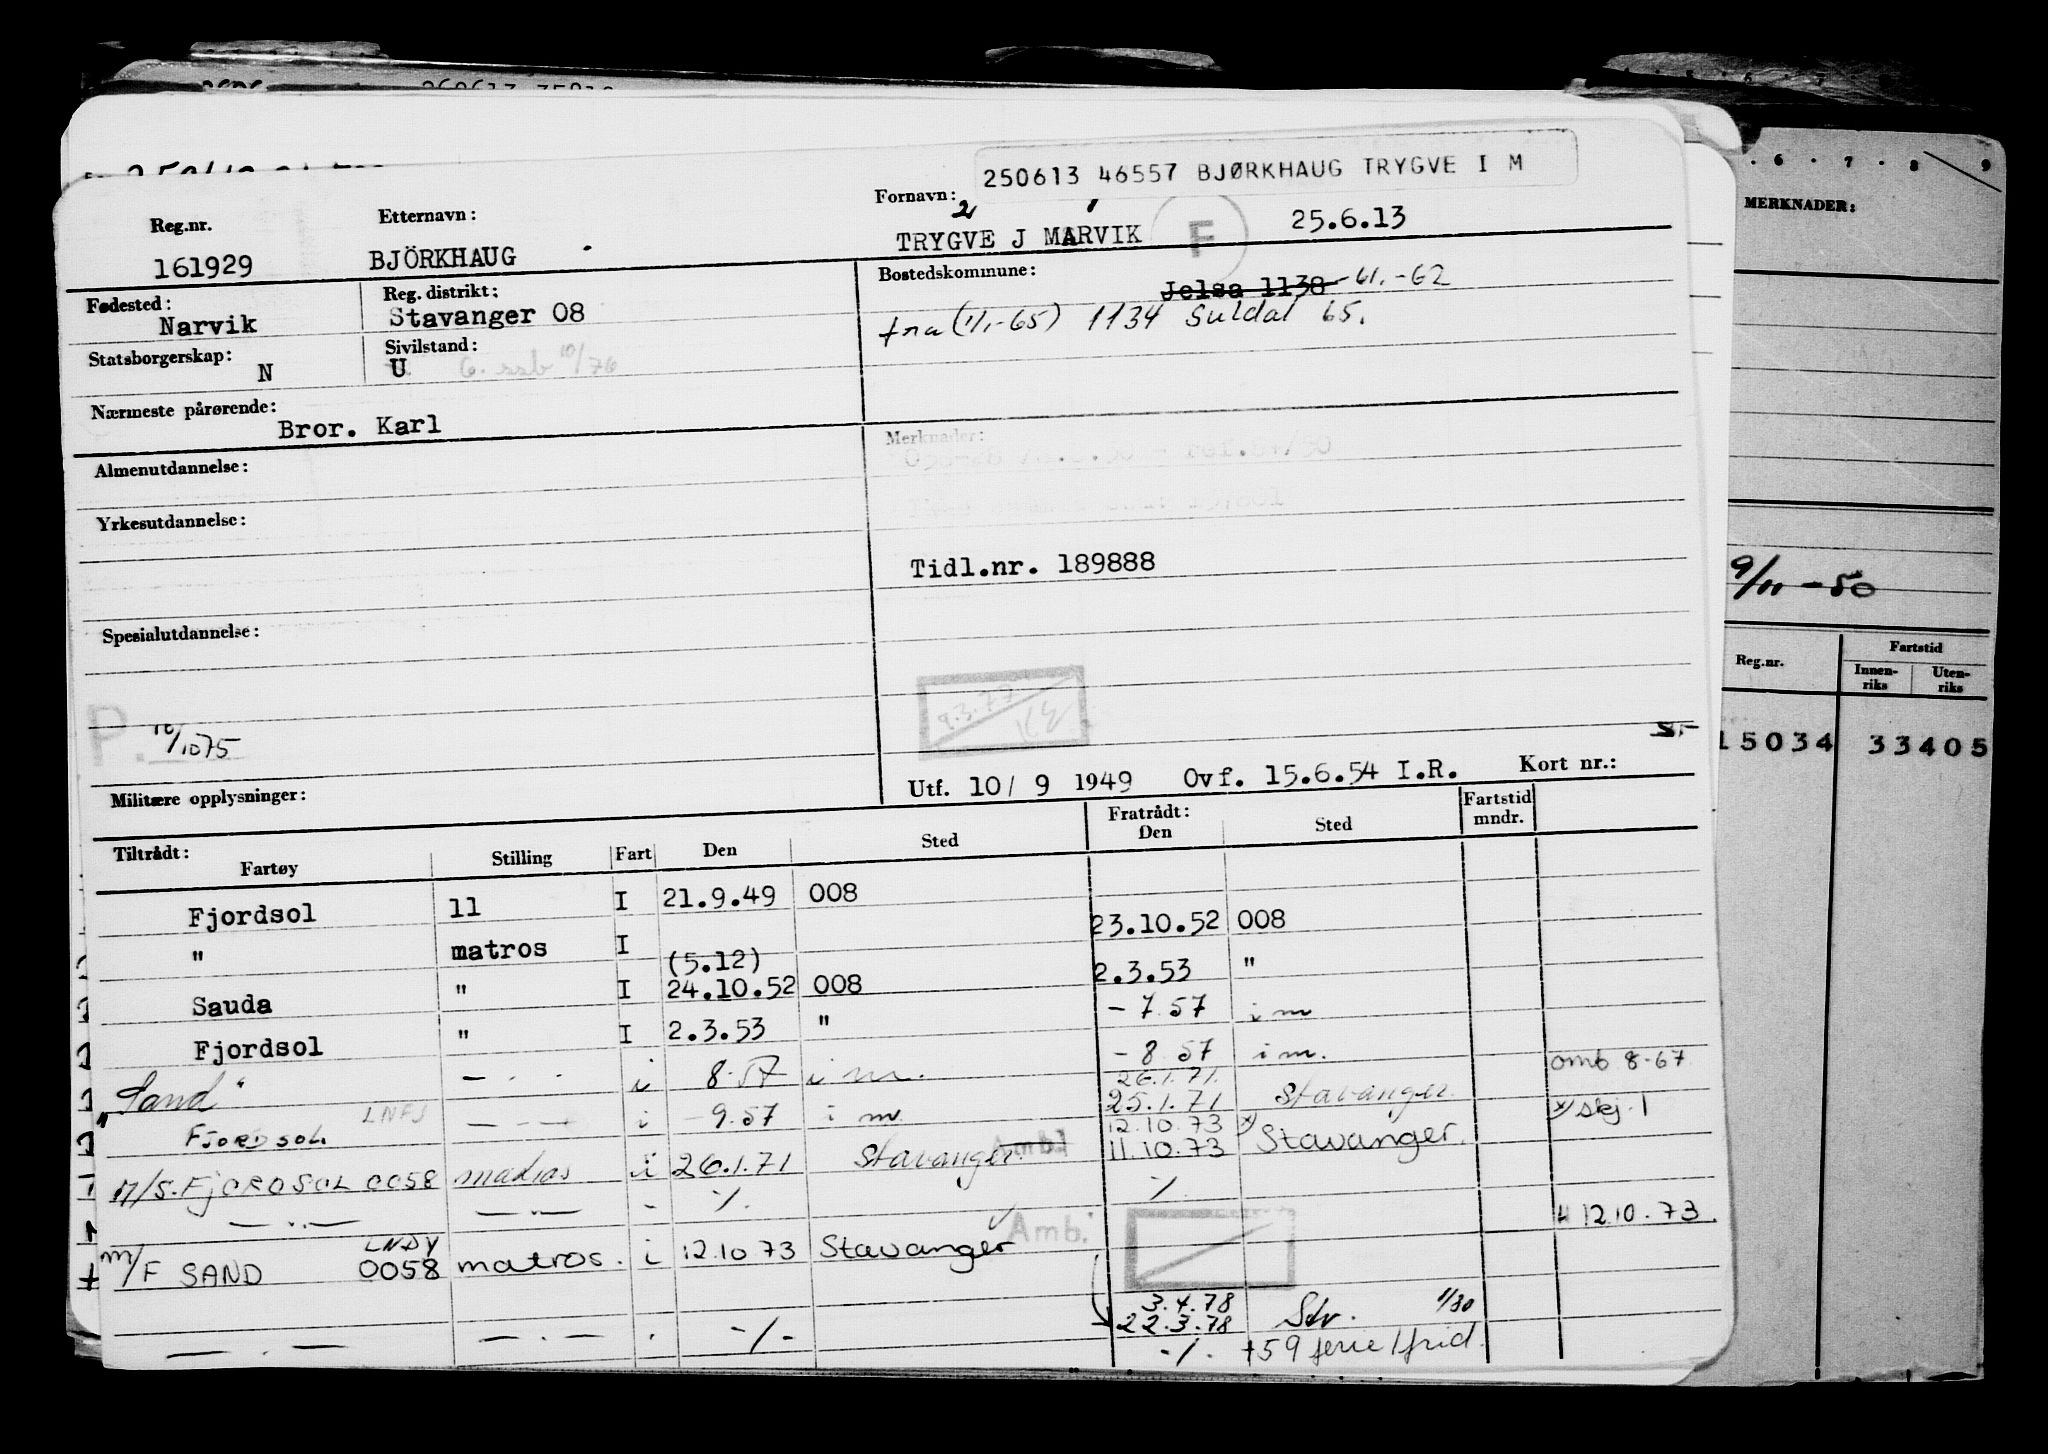 250613 46557 BJØRKHAUG TRYGVE I M
Reg.nr. Etternavn: Fornavn:
161929 BJÖRKHAUG TRYGVE J MARVIK F 25.6.13
Fødested: Reg. distrikt: Bostedskommune:
Narvik Stavanger 08 Jelsa 1138 -61.-62
fra (1/1-65) 1134 Suldal 65.
Statsborgerskap: Sivilstand:
N U G. ssb 10/76
Nærmeste pårørende:
Bror. Karl
Almenutdannelse: Merknader:
Yrkesutdannelse:
Tidl.nr. 189888
Spesialutdannelse:
9.3.77
P. 10/1075
Militære opplysninger: Utf. 10/ 9 1949 Ovf. 15.6.54 I.R. Kort nr.:
Tiltrådt: Fratrådt: Fartstid
Fartøy Stilling Fart Den Sted Den Sted mndr.
Fjordsol 11 I 21.9.49 008 23.10.52 008
" matros I (5.12) 2.3.53 "
Sauda " I 24.10.52 008 - 7.57 i m
Fjordsol " I 2.3.53 " - 8.57 i m.
"Sand" — . - i 8.57 i m. 26.1.71. omb 8-67
25.1.71 Stavanger.
Fjordsol LNFJ i - 9.57 i m. 12.10.73 x) x) skj. 1
M/S. FJORDSOL 0058 matros i 26.1.71 Stavanger. Amb. 11.10.73 Stavanger.
— .. — — .. — - -/. -/.
Amb. 12.10.73.
LNDY
m/F SAND 0058 matros. i 12.10 73 Stavanger
3.4.78
22.3.78 Stv. 1/80
— . — — . — . -/- -/. +59 ferie/frid.
6 . 7 . 8 9
MERKNADER:
9/11 - 50
Reg.nr. Fartstid
Innenriks Utenriks
15034 33405